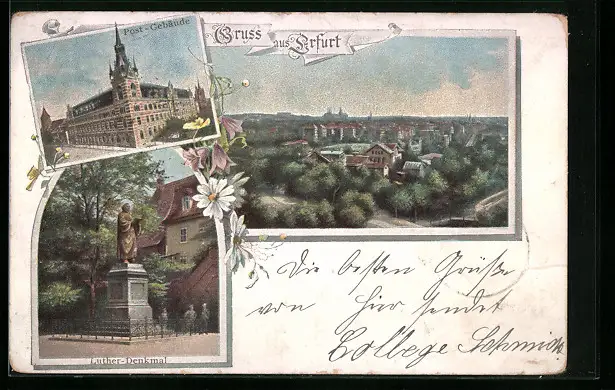 Post-Gebäude
Gruss aus Erfurt
Luther-Denkmal
Die besten Grüße
von hier sendet
College Schmidt